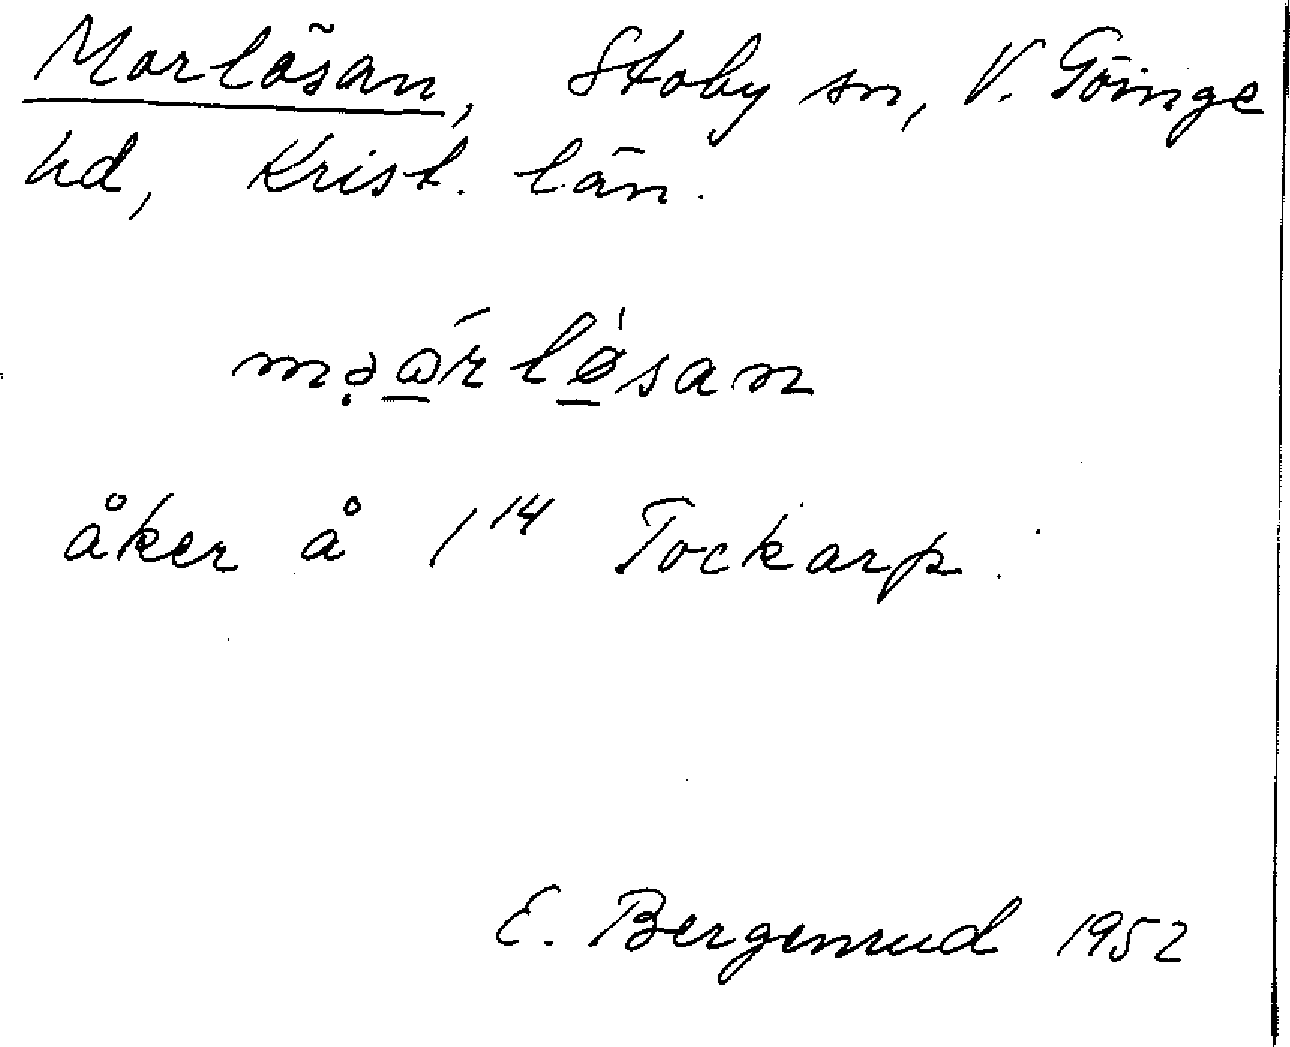 Morlösan, Stoby sn, V. Göinge
hd, Krist. län.
mə̣ώ̲rlǿ̲san
åker å 1¹⁴ Tockarp.
E. Bergenrud 1952